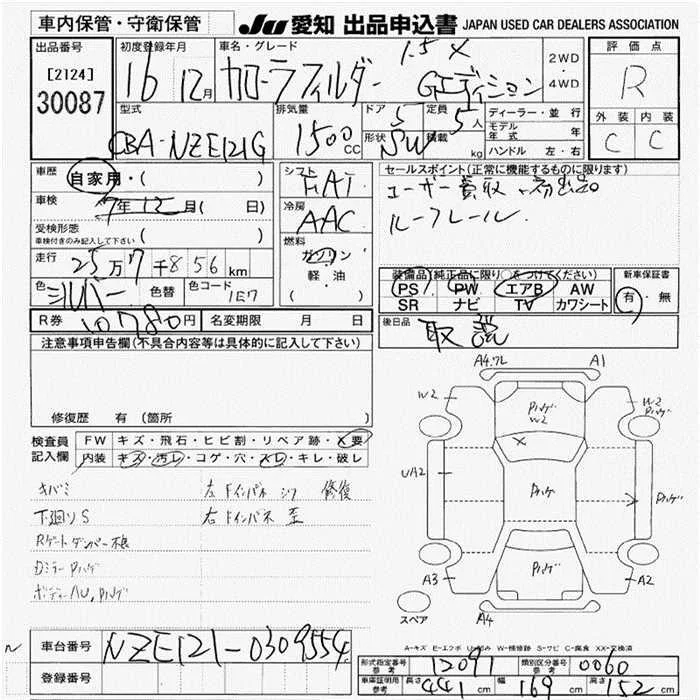 車内保管・守衛保管 JU 愛知 出品申込書 JAPAN USED CAR DEALERS ASSOCIATION
出品番号 [2124] 30087
初度登録年月 16 12月
車名・グレード カローラフィルダー 1.5 X Gエディション
2WD・4WD
評価点 R
外装 C 内装 C
型式 CBA-NZE121G
排気量 1500CC
ドア 5 形状 SW
定員 5人 積載 kg
ディーラー・並行
モデル年式 年
ハンドル 左・右
車歴 自家用・( )
車検 7年12月( 日)
受検形態 車検付きのみ記入して下さい ( )
走行 25万7千856km
色 シルバー 色替 色コード 1E7
シフト FAT
冷房 AAC
燃料 ガソリン 軽油 ( )
セールスポイント(正常に機能するものに限ります)
ユーザー買取 初出品
ルーフレール.
装備品(純正品に限り○をつけてください)
PS PW エアB AW
SR ナビ TV カワシート
新車保証書 有・無
R券 10780円 名変期限 月 日
後日品 取説
注意事項申告欄(不具合内容等は具体的に記入して下さい)
修復歴 有 (箇所
検査員記入欄
FW キズ・飛石・ヒビ割・リペア跡・X要
内装 キズ・汚レ・コゲ・穴・スレ・キレ・破レ
キバミ 左Fインパネ シワ 修復
下廻りS 右Fインパネ 歪
Rゲートダンパー不良
Dミラー Pハゲ
ボディーAU, Pハゲ
A4.ワレ A1
W2 Pハゲ W2 W2 Pハゲ
X
UA2 Pハゲ Pハゲ
A3 Pハゲ A2
スペア A4
A-キズ E-エクボ U-凹み W-補修跡 S-サビ C-腐食 XX-交換済
車台番号 NZE121-0309554
登録番号
形式指定番号 参考 12091 類別区分番号 参考 0060
車庫証明用 参考 長さ 441cm 幅 169cm 高さ 152cm